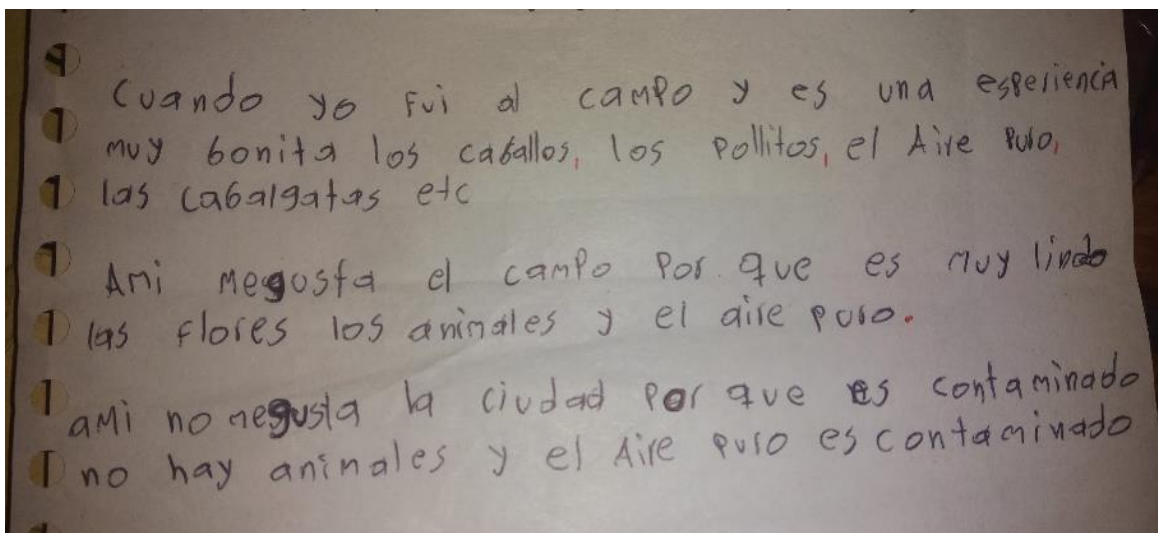 Cuando yo fui al campo y es una esperiencia
muy bonita los caballos, los pollitos, el Aire puro,
las cabalgatas etc
Ami megusta el campo Por que es muy lindo
las flores los animales y el aire puro.
ami no megusta la ciudad Por que es contaminado
no hay animales y el Aire puro es contaminado